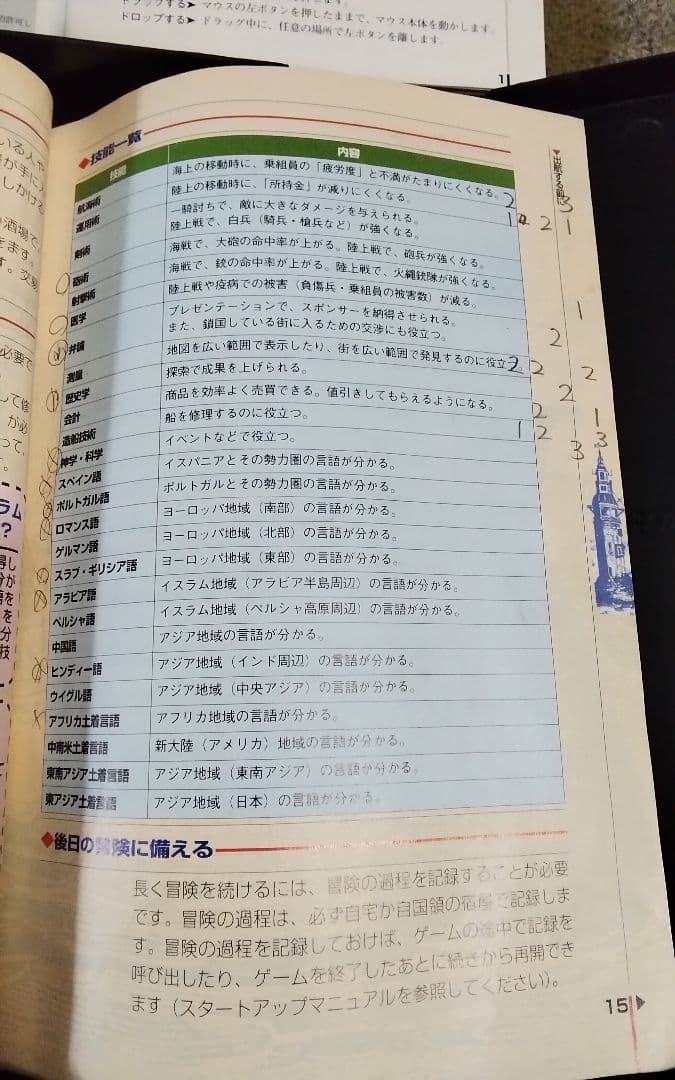 ドラッグする➤ マウスの左ボタンを押したままで、マウス本体を動かします。
ドロップする➤ ドラッグ中に、任意の場所で左ボタンを離します。
◆技能一覧
▼出航する前に
技能 内容
航海術 海上の移動時に、乗組員の「疲労度」と不満がたまりにくくなる。
運用術 陸上の移動時に、「所持金」が減りにくくなる。
剣術 一騎討ちで、敵に大きなダメージを与えられる。
陸上戦で、白兵（騎兵・槍兵など）が強くなる。
砲術 海戦で、大砲の命中率が上がる。陸上戦で、砲兵が強くなる。
射撃術 海戦で、銃の命中率が上がる。陸上戦で、火縄銃隊が強くなる。
医学 陸上戦や疫病での被害（負傷兵・乗組員の被害数）が減る。
弁論 プレゼンテーションで、スポンサーを納得させられる。
また、鎖国している街に入るための交渉にも役立つ。
測量 地図を広い範囲で表示したり、街を広い範囲で発見するのに役立つ。
歴史学 探索で成果を上げられる。
会計 商品を効率よく売買できる。値引きしてもらえるようになる。
造船技術 船を修理するのに役立つ。
神学・科学 イベントなどで役立つ。
スペイン語 イスパニアとその勢力圏の言語が分かる。
ポルトガル語 ポルトガルとその勢力圏の言語が分かる。
ロマンス語 ヨーロッパ地域（南部）の言語が分かる。
ゲルマン語 ヨーロッパ地域（北部）の言語が分かる。
スラブ・ギリシア語 ヨーロッパ地域（東部）の言語が分かる。
アラビア語 イスラム地域（アラビア半島周辺）の言語が分かる。
ペルシャ語 イスラム地域（ペルシャ高原周辺）の言語が分かる。
中国語 アジア地域の言語が分かる。
ヒンディー語 アジア地域（インド周辺）の言語が分かる。
ウイグル語 アジア地域（中央アジア）の言語が分かる。
アフリカ土着言語 アフリカ地域の言語が分かる。
中南米土着言語 新大陸（アメリカ）地域の言語が分かる。
東南アジア土着言語 アジア地域（東南アジア）の言語が分かる。
東アジア土着言語 アジア地域（日本）の言語が分かる。
◆後日の冒険に備える
長く冒険を続けるには、冒険の過程を記録することが必要
です。冒険の過程は、必ず自宅か自国領の宿屋で記録しま
す。冒険の過程を記録しておけば、ゲームの途中で記録を
呼び出したり、ゲームを終了したあとに続きから再開でき
ます（スタートアップマニュアルを参照してください）。
15▶